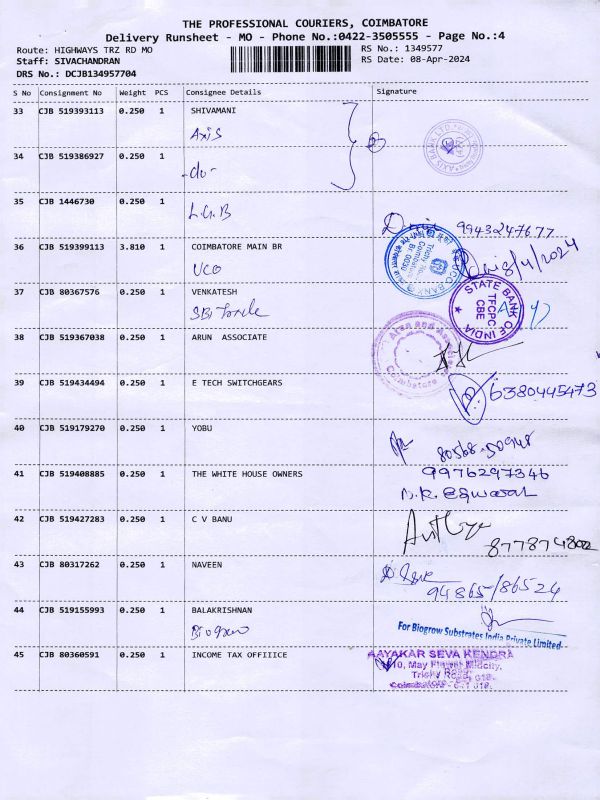 THE PROFESSIONAL COURIERS, COIMBATORE
Delivery Runsheet - MO - Phone No.:0422-3505555 - Page No.:4
Route: HIGHWAYS TRZ RD MO
RS No.: 1349577
Staff: SIVACHANDRAN
RS Date: 08-Apr-2024
DRS No.: DCJB134957704
S No Consignment No Weight PCS Consignee Details Signature
33 CJB 519393113 0.250 1 SHIVAMANI
Axis
AXIS BANK LTD.
34 CJB 519386927 0.250 1
-do-
35 CJB 1446730 0.250 1
L.G.B
9943247677
36 CJB 519399113 3.810 1 COIMBATORE MAIN BR
UCO
UCO BANK
Trichy Road
Coimbatore
8/4/2024
37 CJB 80367576 0.250 1 VENKATESH
SBI
STATE BANK OF INDIA
TFCPC
CBE
38 CJB 519367038 0.250 1 ARUN ASSOCIATE
Coimbatore
39 CJB 519434494 0.250 1 E TECH SWITCHGEARS
6380445473
40 CJB 519179270 0.250 1 YOBU
80568-50948
41 CJB 519408885 0.250 1 THE WHITE HOUSE OWNERS
9976297346
42 CJB 519427283 0.250 1 C V BANU
8778774802
43 CJB 80317262 0.250 1 NAVEEN
94865/86524
44 CJB 519155993 0.250 1 BALAKRISHNAN
Biogrow
For Biogrow Substrates India Private Limited
45 CJB 80360591 0.250 1 INCOME TAX OFFIIICE
AAYAKAR SEVA KENDRA
Trichy Road